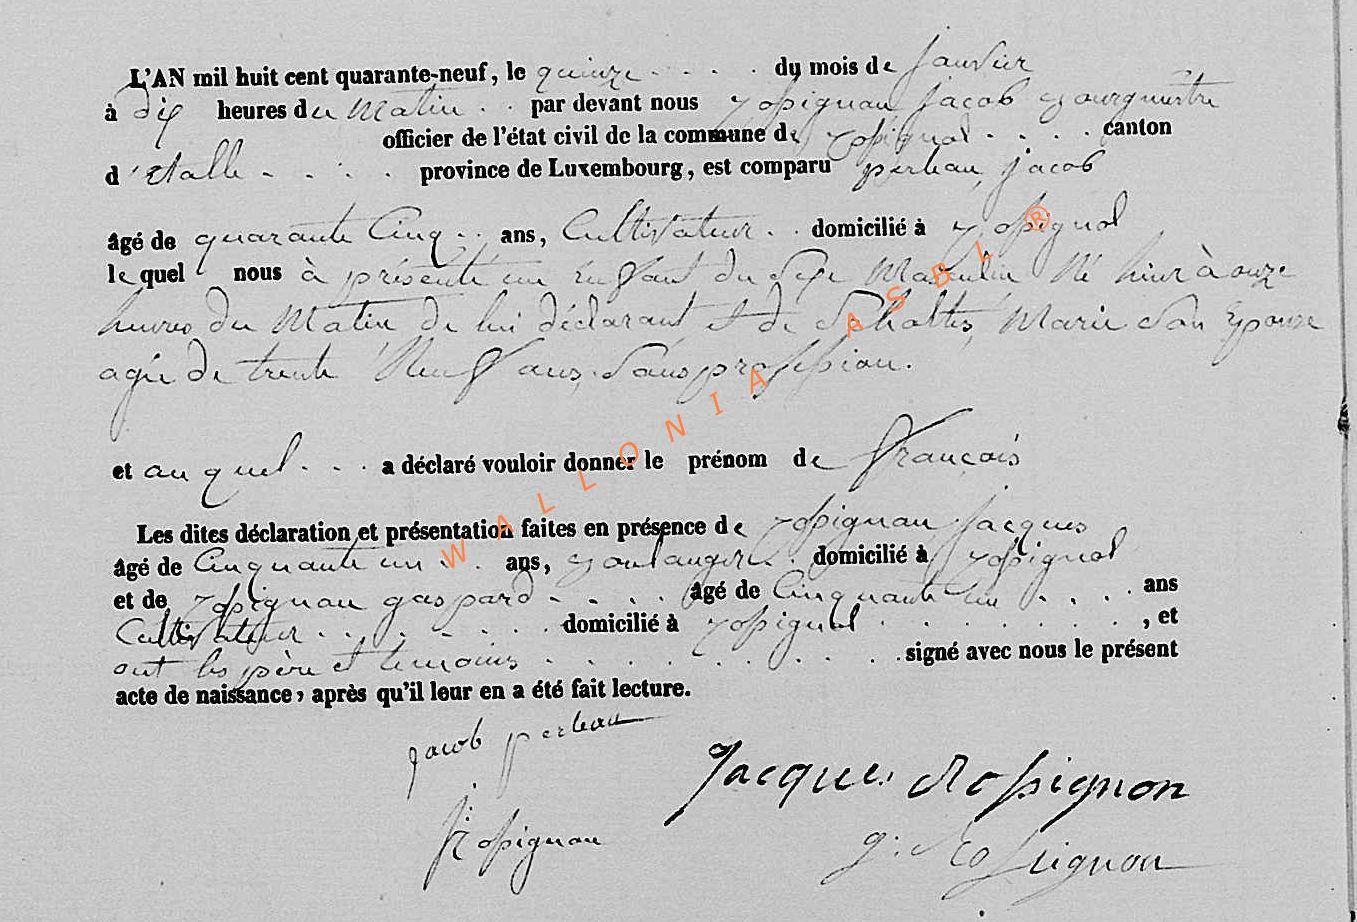 L'AN mil huit cent quarante-neuf, le quinze . . . . du mois de janvier
à dix heures du Matin . . par devant nous Rossignon jacob Bourgmestre
officier de l'état civil de la commune de Rossignol . . . . canton
d'Etalle . . . . province de Luxembourg, est comparu perleau, jacob
âgé de quarante Cinq . . ans, Cultivateur . . domicilié à Rossignol
lequel nous à présenté un Enfant du Sexe Masculin Né hier à onze
heures du Matin de lui déclarant et de Scholtes, Marie Son Epouse
agée de trente Neuf ans, Sans profession.
et au quel . . . a déclaré vouloir donner le prénom de François
Les dites déclaration et présentation faites en présence de Rossignon jacques
âgé de Cinquante un . . ans, Boulanger . domicilié à Rossignol
et de Rossignon gaspard . . . . âgé de Cinquante un . . . . ans
Cultivateur . . . . . . domicilié à Rossignol . . . . . . . , et
ont les père et temoins . . . . . . . . . signé avec nous le présent
acte de naissance, après qu'il leur en a été fait lecture.
jacob perleau
Jacques Rossignon
j: Rossignon
g: Rossignon
WALLONIA ASBL ®